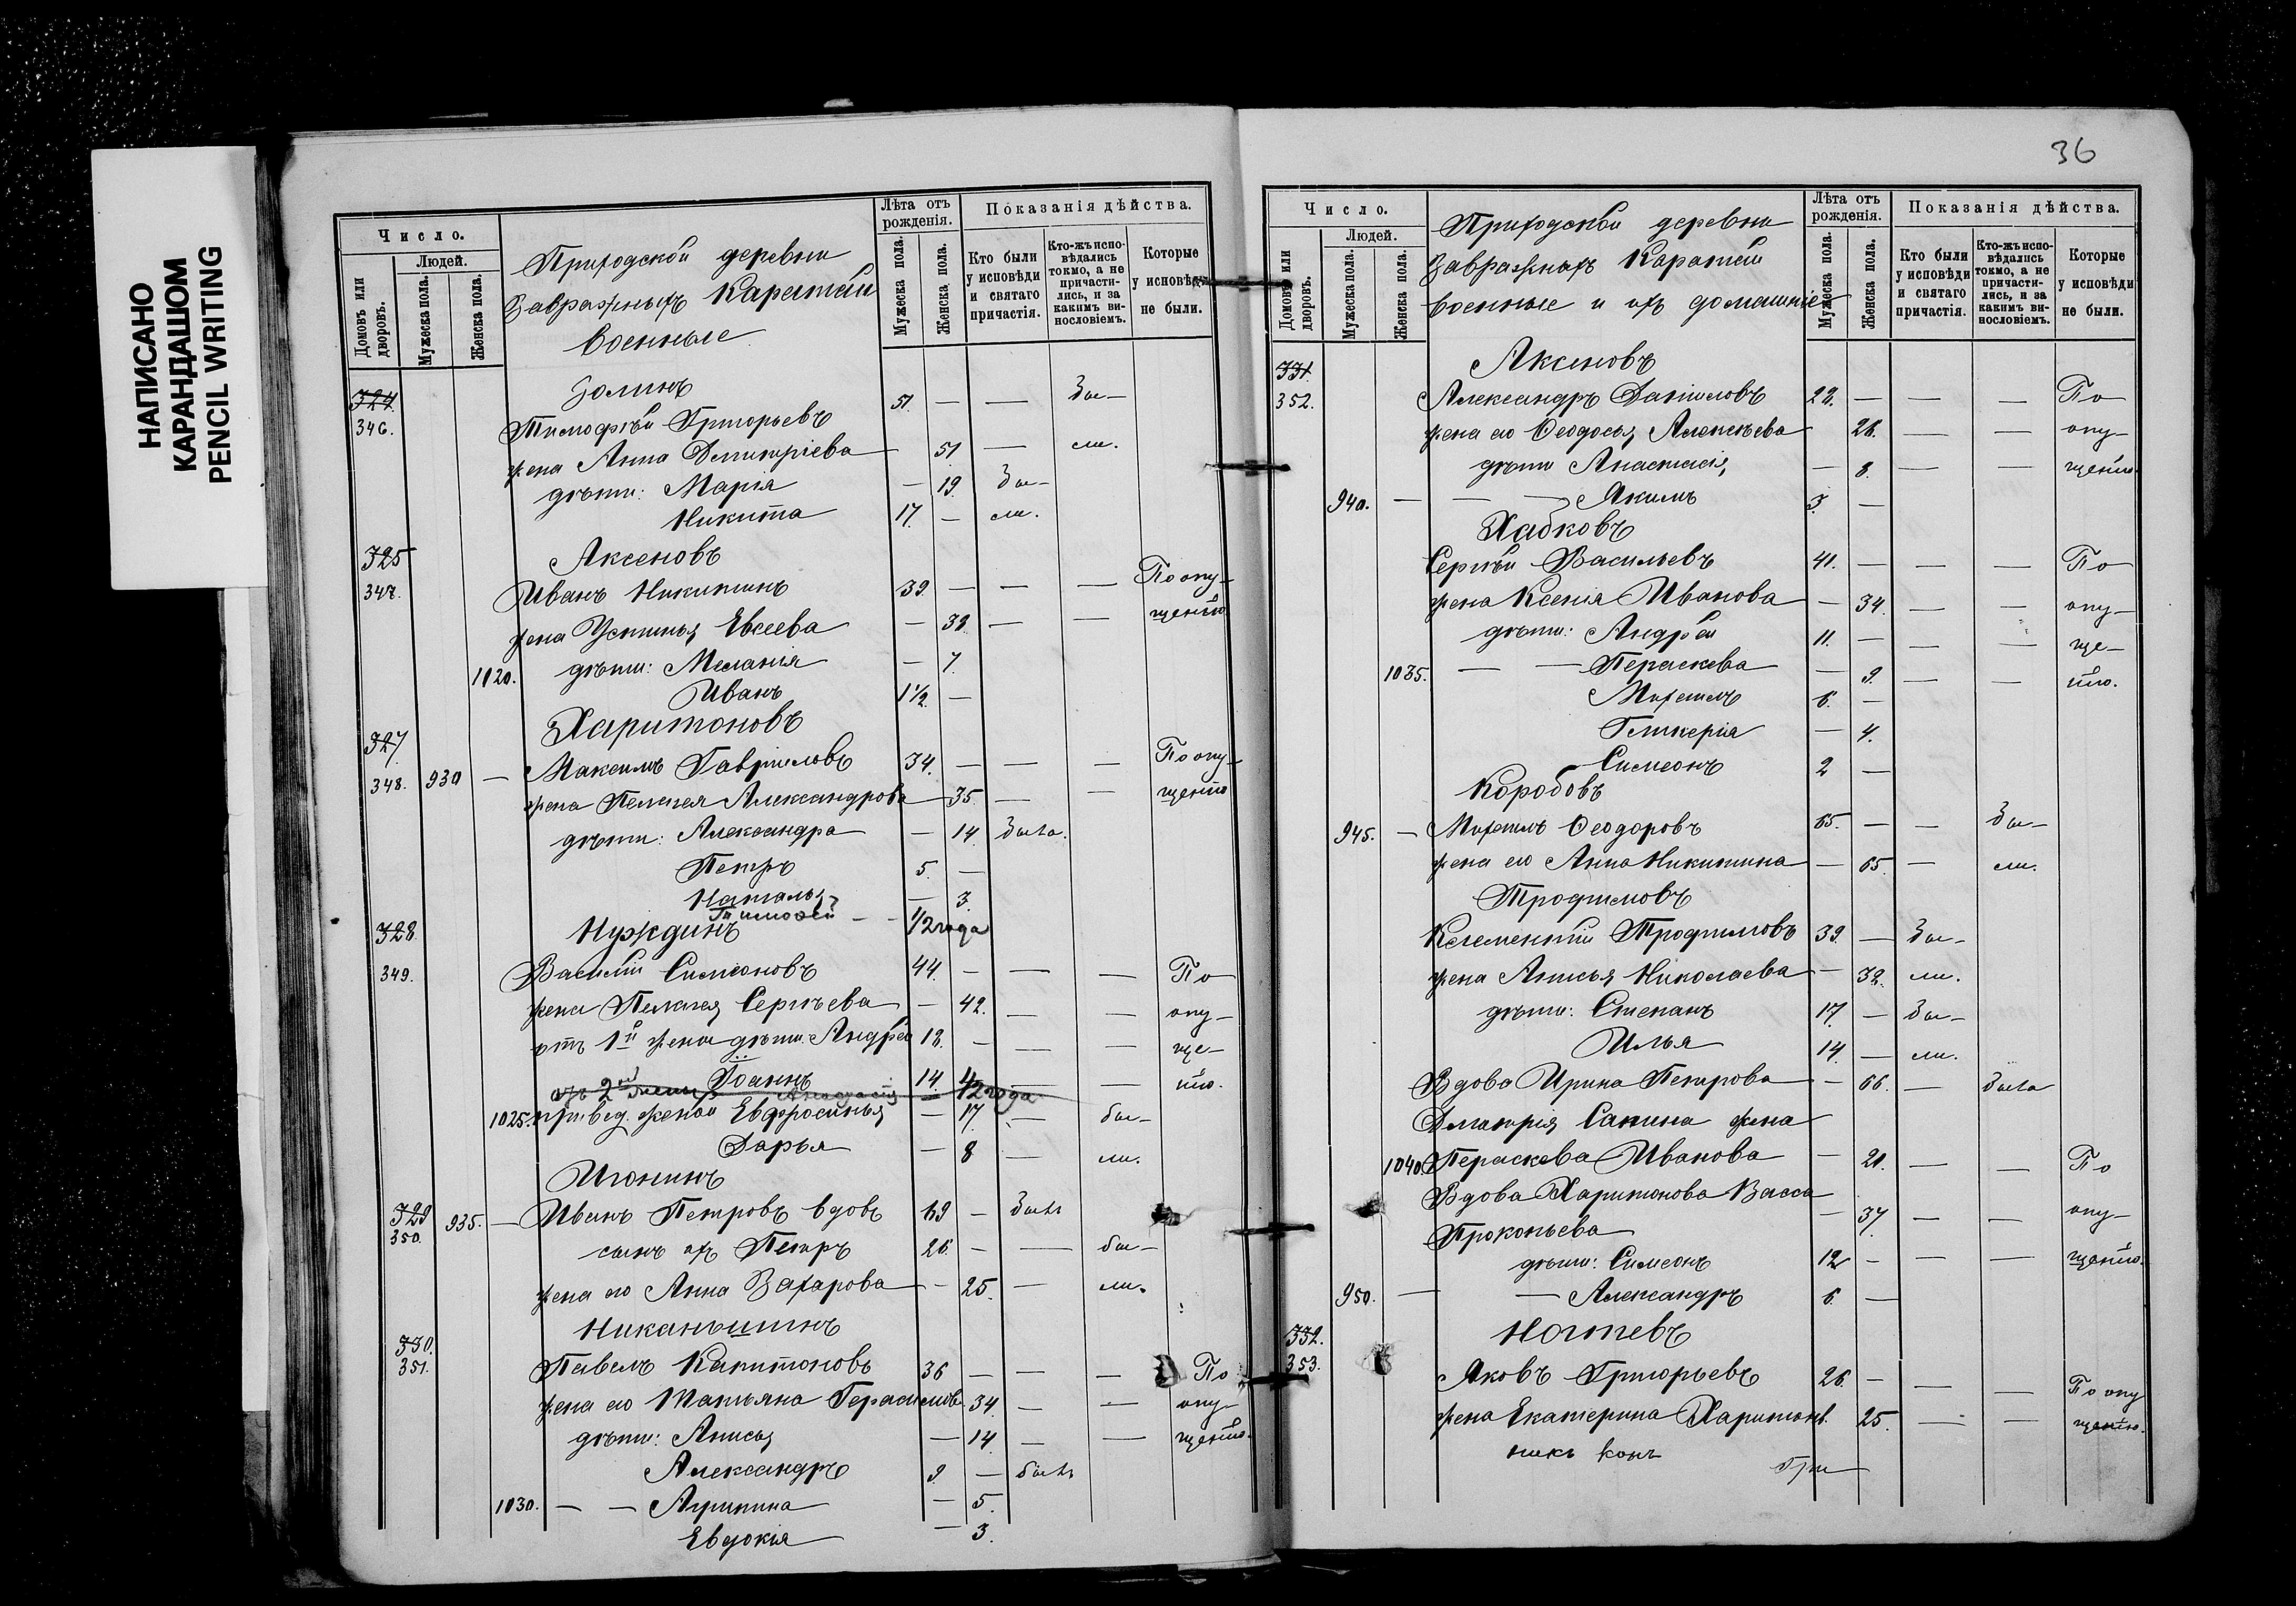 НАПИСАНО
КАРАНДАШОМ
PENCIL WRITING
Число.
Людей.
Домовъ или дворовъ.
Мужеска пола.
Женска пола.
Приходской деревни
Завражныхъ Каратай
военные
Лѣта отъ рожденія.
Мужеска пола.
Женска пола.
Показанія дѣйства.
Кто были у исповѣди и святаго причастія.
Кто-жъ исповѣдались токмо, а не причастились, и за какимъ винословіемъ.
Которые у исповѣди не были.
324. Золинъ
346. Тимофѣй Григорьевъ 51. — — бы-
жена Анна Димитріева 51 — ли.
дѣти: Марія — 19. бы-
Никита 17. — ли.
325 Аксеновъ
347. Иванъ Никитинъ 39. — — — По опу-
жена Устинья Евсеева — 38. — — щенію
1020. дѣти: Меланія — 7.
Иванъ 1 1/2 —
327 Харитоновъ
348. 930 — Максимъ Гавриловъ 34. — — — По опу-
жена Пелагея Александрова — 35. — — щенію
дѣти: Александра — 14. была.
Петръ 5. —
Наталья — 3.
Тимофей — 1/2 года
328 Нуждинъ
349. Василій Симеоновъ 44. — — — По
жена Пелагея Сергѣева — 42. — — опу-
отъ 1й жены дѣти Андрей 18. — — — ще-
Іоаннъ 14. — — нію.
отъ 2ой жены Анастасія — 1/2 года
1025. привед. женой Евфросинья — 17. — бы-
Дарья — 8 — ли.
Игонинъ
329 350. 935. — Иванъ Петровъ вдовъ 69 — былъ
сынъ их Петръ 26. — — бы-
жена его Анна Захарова — 25. — ли.
330. Никаньшинъ
351. Павелъ Капитоновъ 36 — — — По
жена его Татьяна Герасимова 34. — — опу-
дѣти: Анисья — 14. — — щенію.
Александръ 9 — былъ
1030. — — Агрипина — 5.
Евдокія — 3.
36
Число.
Людей.
Домовъ или дворовъ.
Мужеска пола.
Женска пола.
Приходской деревни
Завражныхъ Каратай
военные и ихъ домашніе
Лѣта отъ рожденія.
Мужеска пола.
Женска пола.
Показанія дѣйства.
Кто были у исповѣди и святаго причастія.
Кто-жъ исповѣдались токмо, а не причастились, и за какимъ винословіемъ.
Которые у исповѣди не были.
331. Аксеновъ
352. Александръ Даниловъ 28. — — — По
жена его Ѳеодосья Алексѣева 26. — — опу-
дѣти Анастасія — 8. — — щенію.
940. — — Акимъ 3. —
Хабковъ
Сергѣй Васильевъ 41. — — — По
жена Ксенія Иванова — 34. — — опу-
дѣти: Андрей 11. — — — ще-
1035. — — Параскева — 9. — — нію.
Михаилъ 6. —
Гликерія — 4.
Симеонъ 2 —
Коробовъ
945. — Михаилъ Ѳеодоровъ 65. — — бы-
жена его Анна Никитина — 65. — ли.
Трофимовъ
Трофимовъ 39. — бы-
жена Анисья Николаева — 38. ли.
дѣти: Степанъ 17. — бы-
Илья 14. — ли.
Вдова Ирина Петрова — 66. — была
Димитрія Сапина жена
1040. Параскева Иванова — 21. — — По
Вдова Харитонова Васса
Прокопьева — 37. — — опу-
дѣти: Симеонъ 12 — — — щенію.
950. — — Александръ 6. —
332. Ногтевъ
353. Яковъ Григорьевъ 26. — — — По опу
жена Екатерина Харитонв. 25. — — щенію.